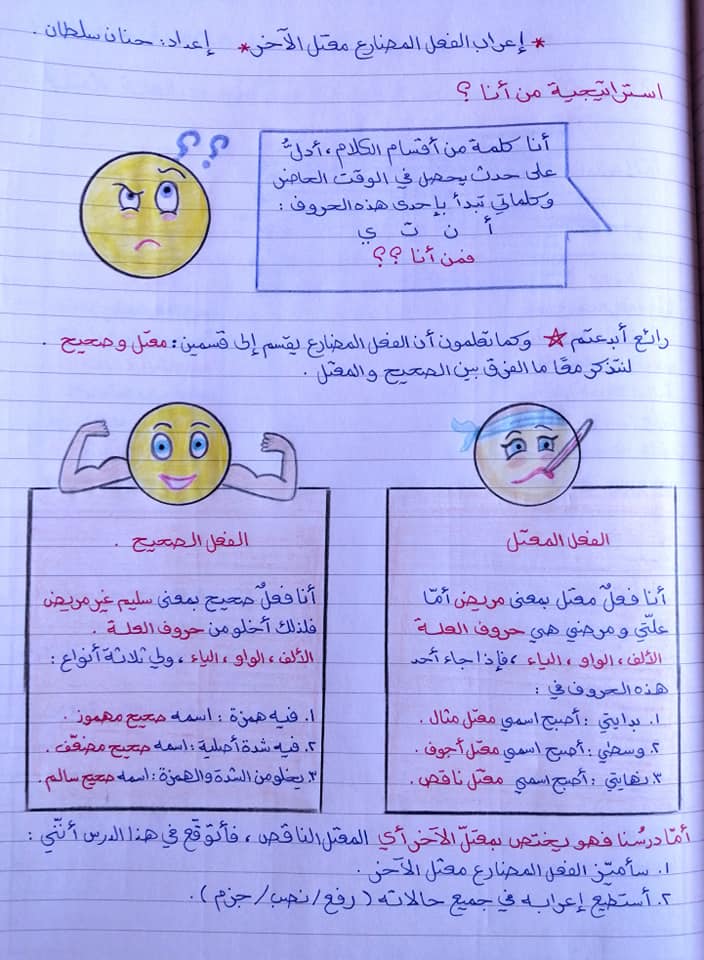 * إعراب الفعل المضارع معتل الآخر * إعداد: حنان سلطان.
استراتيجية من أنا ؟
؟؟
أنا كلمة من أقسام الكلام، أدلُّ
على حدث يحصل في الوقت الحاضر
وكلماتي تبدأ بإحدى هذه الحروف:
أ ن ت ي
فمن أنا ؟؟
رائع أبدعتم ☆ وكما تعلمون أن الفعل المضارع يقسم إلى قسمين: معتل وصحيح.
لنتذكر معًا ما الفرق بين الصحيح والمعتل.
الفعل المعتل
أنا فعلٌ معتل بمعنى مريض أمّا
علّتي ومرضي هي حروف العلة
الألف، الواو، الياء، فإذا جاء أحد
هذه الحروف في:
١. بدايتي: أصبح اسمي معتل مثال.
٢. وسطي: أصبح اسمي معتل أجوف.
٣. نهايتي: أصبح اسمي معتل ناقص.
الفعل الصحيح.
أنا فعلٌ صحيح بمعنى سليم غير مريض
فلذلك أخلو من حروف العلة.
الألف، الواو، الياء، ولي ثلاثة أنواع:
١. فيه همزة: اسمه صحيح مهموز.
٢. فيه شدة أصلية: اسمه صحيح مضعّف.
٣. يخلو من الشدة والهمزة: اسمه صحيح سالم.
أمّا درسُنا فهو يختص بمعتلّ الآخر أي المعتل الناقص، فأتوقع في هذا الدرس أنّني:
١. سأميّز الفعل المضارع معتل الآخر.
٢. أستطيع إعرابه في جميع حالاته (رفع/نصب/جزم).